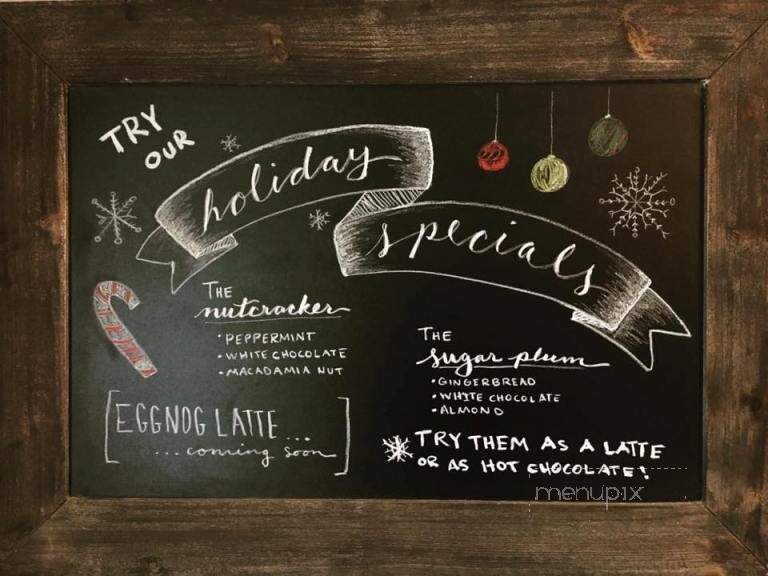 TRY
OUR
holiday
specials
THE
nutcracker
• PEPPERMINT
• WHITE CHOCOLATE
• MACADAMIA NUT
THE
sugar plum
• GINGERBREAD
• WHITE CHOCOLATE
• ALMOND
[EGGNOG LATTE ...
... coming soon]
TRY THEM AS A LATTE
OR AS HOT CHOCOLATE!
menupix